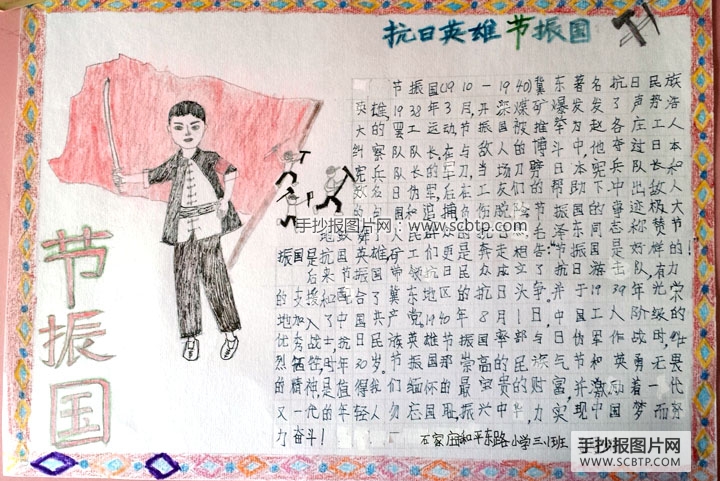 抗日英雄节振国
节振国
节振国(1910-1940)冀东著名抗日民族
英雄,1938年3月,开滦煤矿爆发了声势浩
大的罢工运动,节振国被推举为赵各庄工人
纠察队队长,在与敌人的搏斗中,他夺过日本
宪兵队队长的刀,当场劈日本宪兵队长和
数名日伪军,后在工友们的帮助下冲出敌人
的包围和追捕负伤脱险。节振国的事迹极大
地鼓舞了人民群众的抗日 毛泽东同志称赞节
振国是抗日英雄,矿工们更是奔走相告:"节振国是好样的!
后来节振国带领抗日民众成立了抗日游击队,有力
的支援和配合了冀东地区的抗日斗争。并于1939年光荣
地加入了中国共产党。1940年8月1日,中国工人阶级的
优秀战士,抗日民族英雄节振国率部与日伪军作战时,壮
烈牺牲,时年30岁。节振国那崇高的民族气节和英勇无畏
的精神,是值得我们缅怀的最宝贵的财富,并激励着一代
又一代的年轻人勿忘国耻,振兴中华,力实现中国梦而努
力奋斗!
石家庄和平东路小学三.班
手抄报图片网:www.scbtp.com
手抄报图片网
WWW.SCBTP.COM